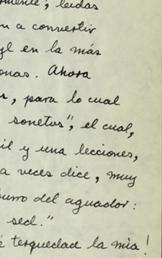 omente, leidas
n a convertir
yl en la más
onas. Ahora
, para lo cual
sonetos", el cual,
il y una lecciones,
a veces dice, muy
urro del aguador:
sed."
terquedad la mia!